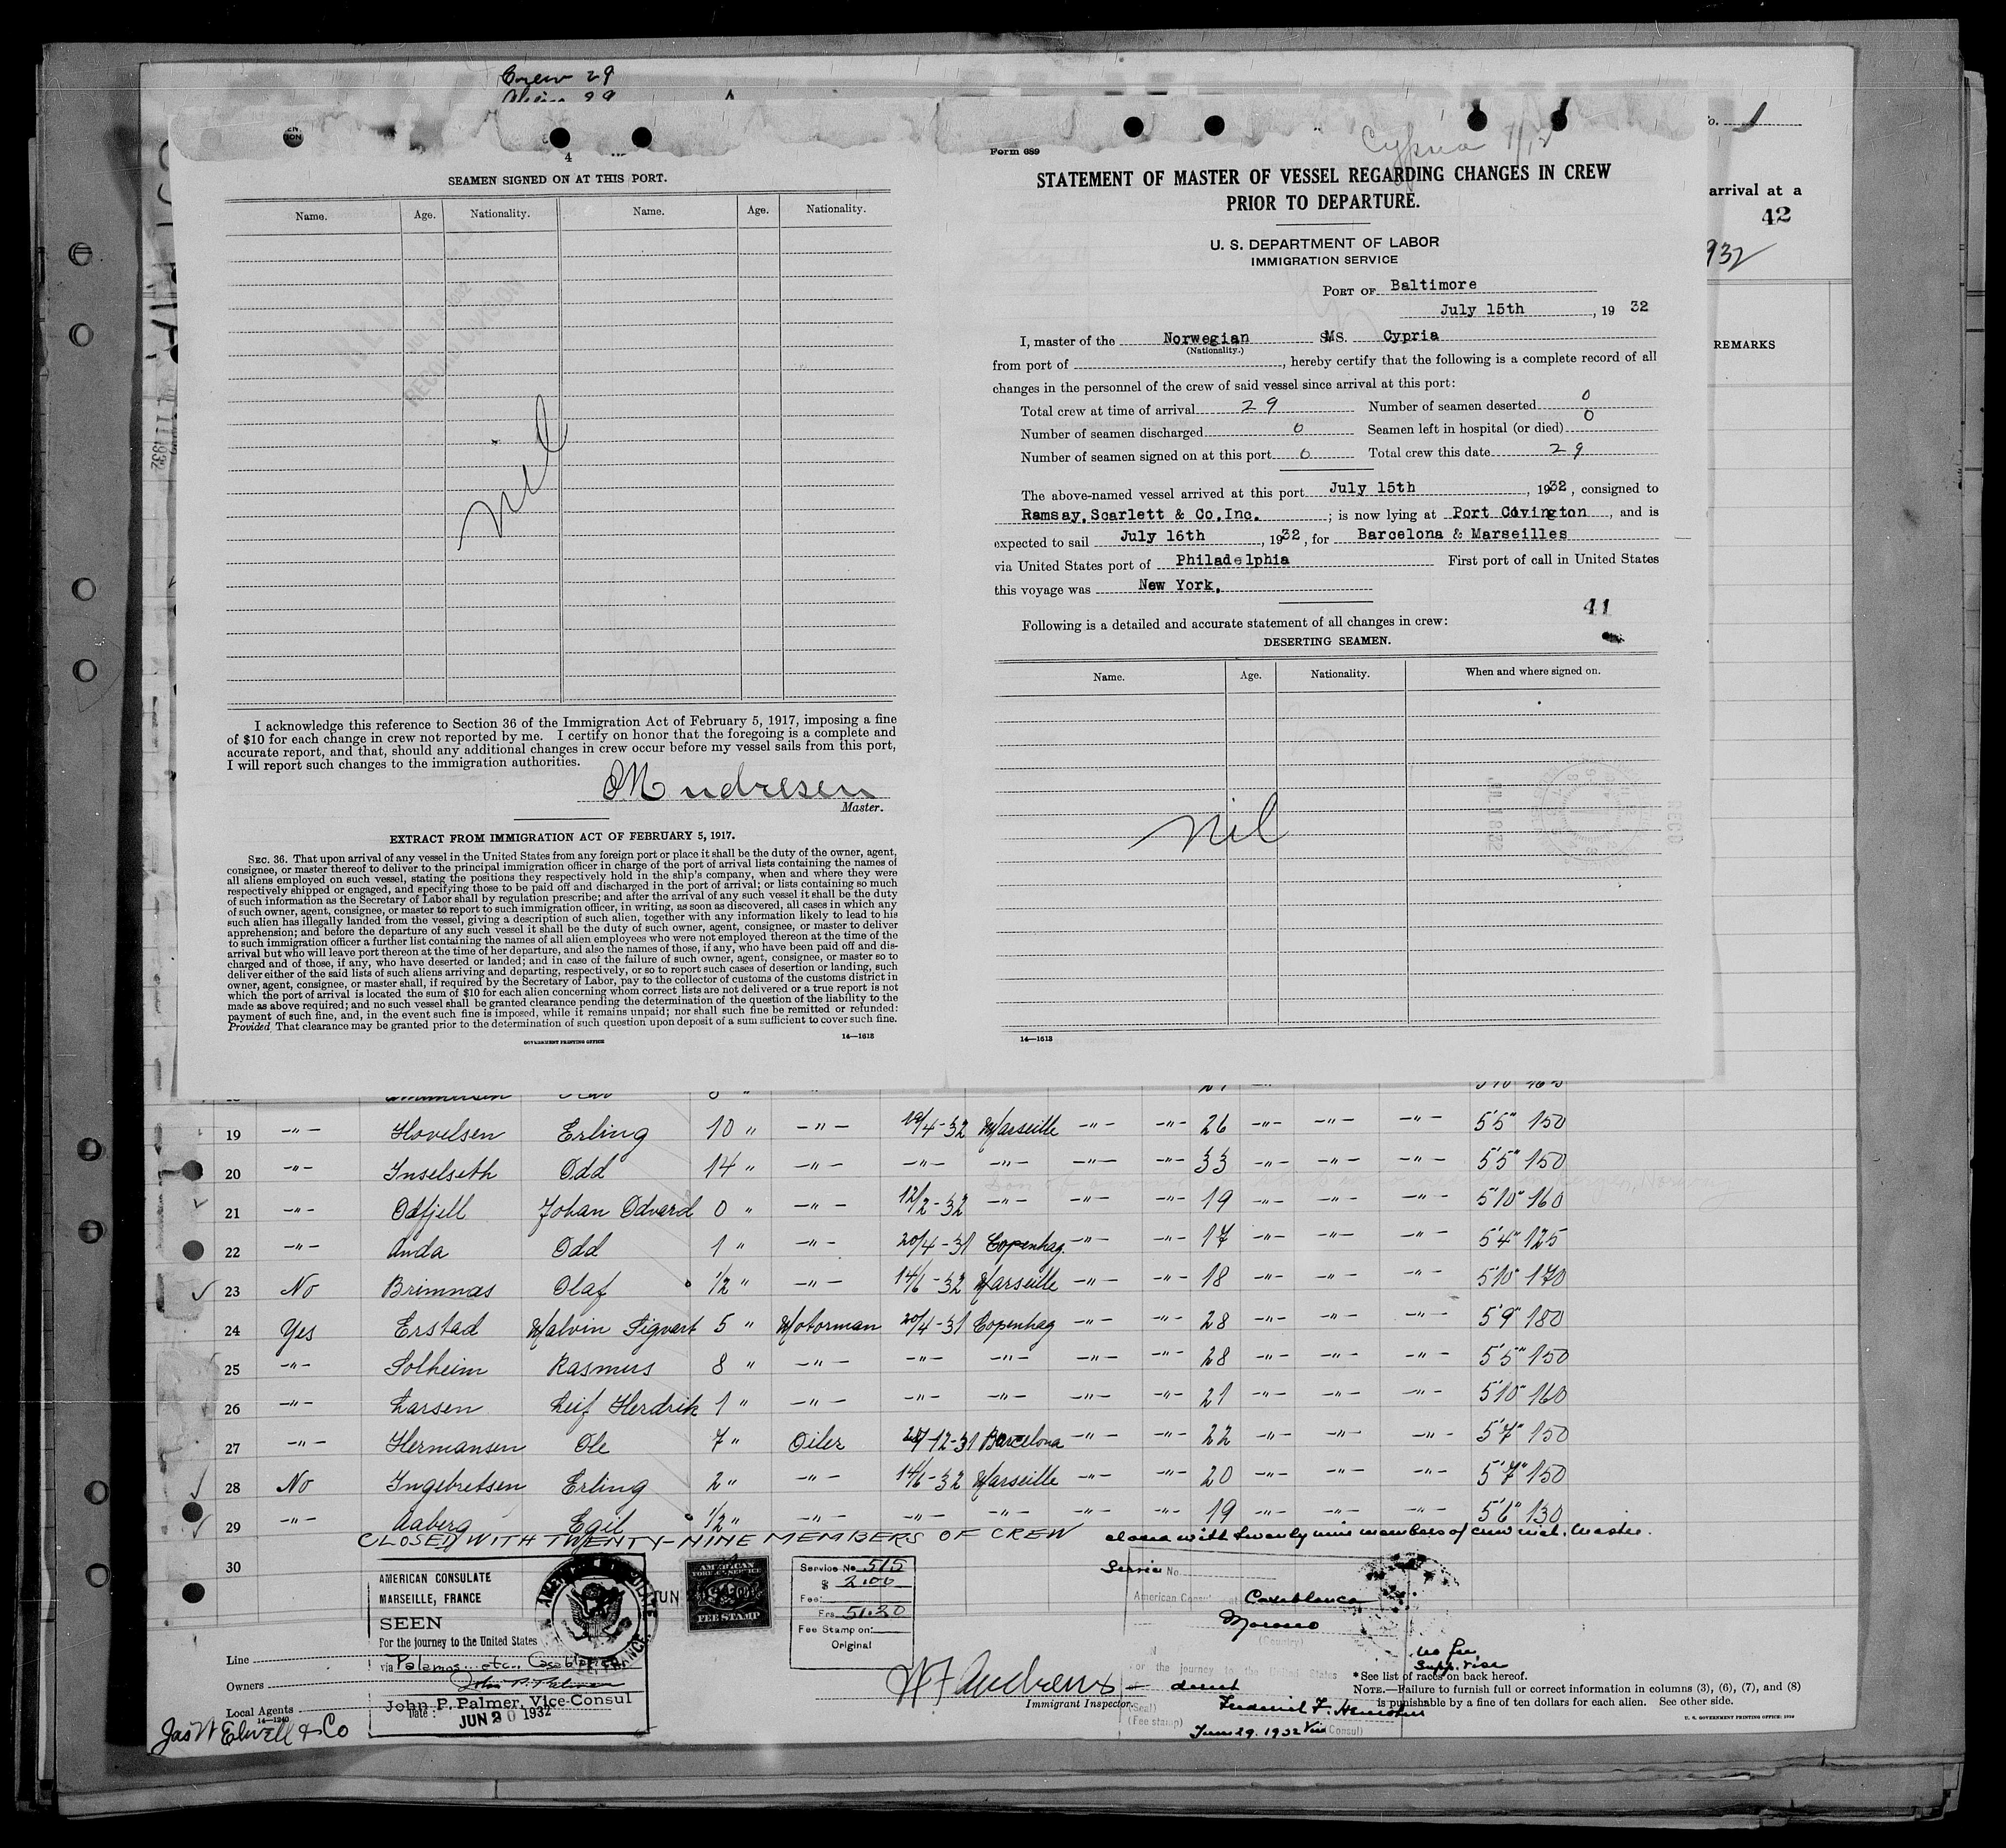 Crew 29
4
SEAMEN SIGNED ON AT THIS PORT.
Name. Age. Nationality. Name. Age. Nationality.
nil
I acknowledge this reference to Section 36 of the Immigration Act of February 5, 1917, imposing a fine
of $10 for each change in crew not reported by me. I certify on honor that the foregoing is a complete and
accurate report, and that, should any additional changes in crew occur before my vessel sails from this port,
I will report such changes to the immigration authorities.
Master.
EXTRACT FROM IMMIGRATION ACT OF FEBRUARY 5, 1917.
SEC. 36. That upon arrival of any vessel in the United States from any foreign port or place it shall be the duty of the owner, agent,
consignee, or master thereof to deliver to the principal immigration officer in charge of the port of arrival lists containing the names of
all aliens employed on such vessel, stating the positions they respectively hold in the ship's company, when and where they were
respectively shipped or engaged, and specifying those to be paid off and discharged in the port of arrival; or lists containing so much
of such information as the Secretary of Labor shall by regulation prescribe; and after the arrival of any such vessel it shall be the duty
of such owner, agent, consignee, or master to report to such immigration officer, in writing, as soon as discovered, all cases in which any
such alien has illegally landed from the vessel, giving a description of such alien, together with any information likely to lead to his
apprehension; and before the departure of any such vessel it shall be the duty of such owner, agent, consignee, or master to deliver
to such immigration officer a further list containing the names of all alien employees who were not employed thereon at the time of the
arrival but who will leave port thereon at the time of her departure, and also the names of those, if any, who have been paid off and dis-
charged and of those, if any, who have deserted or landed; and in case of the failure of such owner, agent, consignee, or master so to
deliver either of the said lists of such aliens arriving and departing, respectively, or so to report such cases of desertion or landing, such
owner, agent, consignee, or master shall, if required by the Secretary of Labor, pay to the collector of customs of the customs district in
which the port of arrival is located the sum of $10 for each alien concerning whom correct lists are not delivered or a true report is not
made as above required; and no such vessel shall be granted clearance pending the determination of the question of the liability to the
payment of such fine, and, in the event such fine is imposed, while it remains unpaid; nor shall such fine be remitted or refunded:
Provided That clearance may be granted prior to the determination of such question upon deposit of a sum sufficient to cover such fine.
GOVERNMENT PRINTING OFFICE 14—1613
Cypria 7/12
Form 689
STATEMENT OF MASTER OF VESSEL REGARDING CHANGES IN CREW
PRIOR TO DEPARTURE.
U. S. DEPARTMENT OF LABOR
IMMIGRATION SERVICE
PORT OF Baltimore
July 15th, 1932
I, master of the Norwegian MS. Cypria
(Nationality.)
from port of , hereby certify that the following is a complete record of all
changes in the personnel of the crew of said vessel since arrival at this port:
Total crew at time of arrival 29 Number of seamen deserted 0
Number of seamen discharged 0 Seamen left in hospital (or died) 0
Number of seamen signed on at this port 0 Total crew this date 29
The above-named vessel arrived at this port July 15th, 1932, consigned to
Ramsay, Scarlett & Co. Inc. ; is now lying at Port Covington, and is
expected to sail July 16th, 1932, for Barcelona & Marseilles
via United States port of Philadelphia First port of call in United States
this voyage was New York.
41
Following is a detailed and accurate statement of all changes in crew:
DESERTING SEAMEN.
Name. Age. Nationality. When and where signed on.
nil
14—1613
1
arrival at a
42
932
REMARKS
19 -"- Hovelsen Erling 10 " -"- 19/4-32 Marseille -"- -"- 26 -"- -"- -"- 5'5" 150
20 -"- Inselseth Odd 14 " -"- -"- -"- -"- -"- 33 -"- -"- -"- 5'5" 150
21 -"- Odfjell Johan Odvard 0 " -"- 12/2-32 -"- -"- -"- 19 -"- -"- -"- 5'10" 160
22 -"- Anda Odd 1 " -"- 20/4-31 Copenhag. -"- -"- 17 -"- -"- -"- 5'4" 125
23 No Brimnas Olaf 1/2 " -"- 14/6-32 Marseille -"- -"- 18 -"- -"- -"- 5'10" 170
24 Yes Erstad Malvin Sigvart 5 " Motorman 20/4-31 Copenhag -"- -"- 28 -"- -"- -"- 5'9" 180
25 -"- Solheim Rasmus 8 " -"- -"- -"- -"- -"- 28 -"- -"- -"- 5'5" 150
26 -"- Larsen Leif Herdrik 1 " -"- -"- -"- -"- -"- 21 -"- -"- -"- 5'10" 160
27 -"- Hermansen Ole 7 " Oiler 12-31 Barcelona -"- -"- 22 -"- -"- -"- 5'7" 150
28 No Ingebretsen Erling 2 " -"- 14/6-32 Marseille -"- -"- 20 -"- -"- -"- 5'7" 150
29 -"- Aaberg Egil 1/2 " -"- -"- -"- -"- -"- 19 -"- -"- -"- 5'6" 130
CLOSED WITH TWENTY-NINE MEMBERS OF CREW closed with twenty nine members of crew incl. Master.
30
AMERICAN CONSULATE
MARSEILLE, FRANCE
SEEN
For the journey to the United States
via Palamos etc., Casablanca
John P. Palmer
John P. Palmer, Vice-Consul
Date: JUN 20 1932
JUN
AMERICAN
FOREIGN SERVICE
FEE STAMP
Service No. 515
$ 2.00
Fee:
Frs. 51.20
Fee Stamp on:
Original
Service No.
American Consul at Casablanca
Morocco
(Country)
For the journey to the United States
direct
(Seal)
(Fee stamp)
June 29. 1932 Vice Consul)
No fee
Line
Owners
Local Agents
14—1240
Jas W Elwell & Co
W F Andrews
Immigrant Inspector.
*See list of races on back hereof.
NOTE.—Failure to furnish full or correct information in columns (3), (6), (7), and (8)
is punishable by a fine of ten dollars for each alien. See other side.
U. S. GOVERNMENT PRINTING OFFICE: 1930